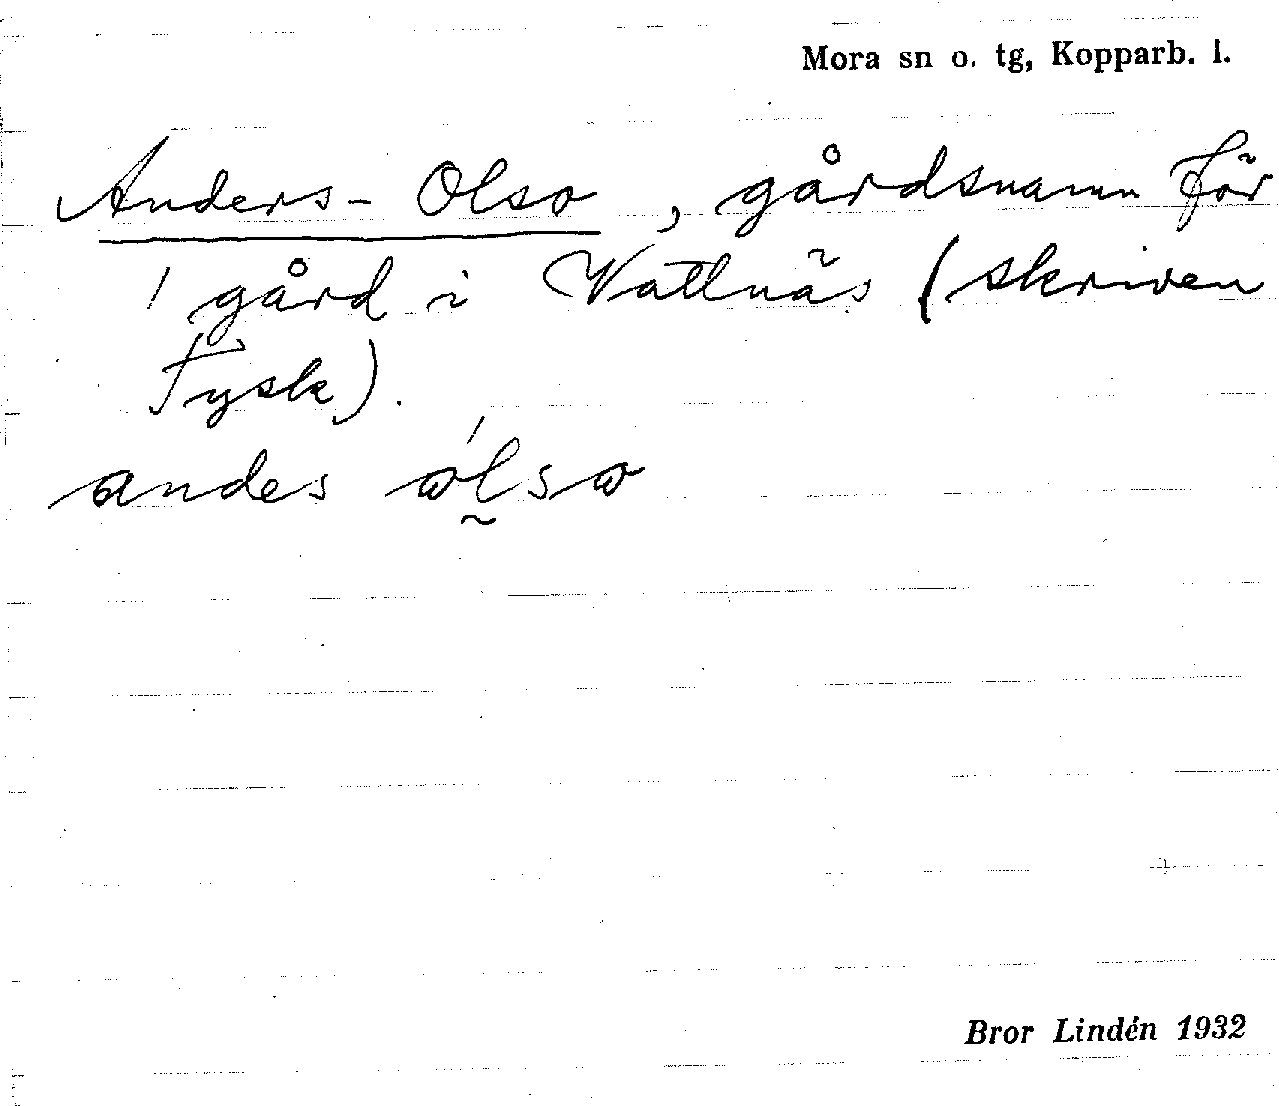 Mora sn o. tg, Kopparb. l.
Anders-Olso, gårdsnamn för
1 gård i Vattnäs (skriven
Tysk).
andes ålsa
Bror Lindén 1932